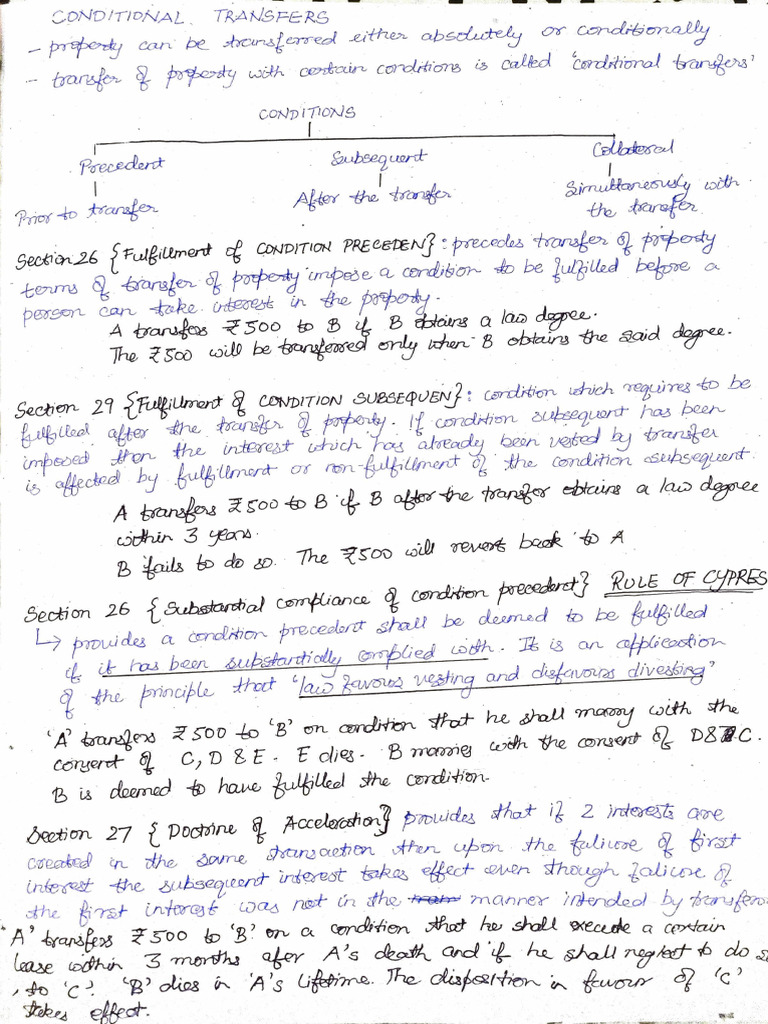 CONDITIONAL TRANSFERS
- property can be transferred either absolutely or conditionally
- transfer of property with certain conditions is called 'conditional transfers'
CONDITIONS
Precedent Subsequent Collateral
Prior to transfer After the transfer Simultaneously with
the transfer
Section 26 {Fulfillment of CONDITION PRECEDEN}: precedes transfer of property
terms of transfer of property impose a condition to be fulfilled before a
person can take interest in the property.
A transfers ₹500 to B if B obtains a law degree.
The ₹500 will be transferred only when B obtains the said degree.
Section 29 {Fulfillment of CONDITION SUBSEQUEN}: condition which requires to be
fulfilled after the transfer of property. If condition subsequent has been
imposed then the interest which has already been vested by transfer
is affected by fulfillment or non-fulfillment of the condition subsequent.
A transfers ₹500 to B if B after the transfer obtains a law degree
within 3 years.
B fails to do so. The ₹500 will revert back to A
Section 26 {Substantial compliance of condition precedent} RULE OF CYPRES
↳ provides a condition precedent shall be deemed to be fulfilled
if it has been substantially complied with. It is an application
of the principle that "law favours vesting and disfavours divesting"
'A' transfers ₹500 to 'B' on condition that he shall marry with the
consent of C, D & E. E dies. B marries with the consent of D & C.
B is deemed to have fulfilled the condition.
Section 27 {Doctrine of Acceleration} provides that if 2 interests are
created in the same transaction then upon the faliure of first
interest the subsequent interest takes effect even though faliure of
the first interest was not in the manner intended by transfero
'A' transfers ₹500 to 'B' on a condition that he shall execute a certain
lease within 3 months after A's death and if he shall neglect to do s
, to 'C'. 'B' dies in 'A's lifetime. The disposition in favour of 'C'
takes effect.